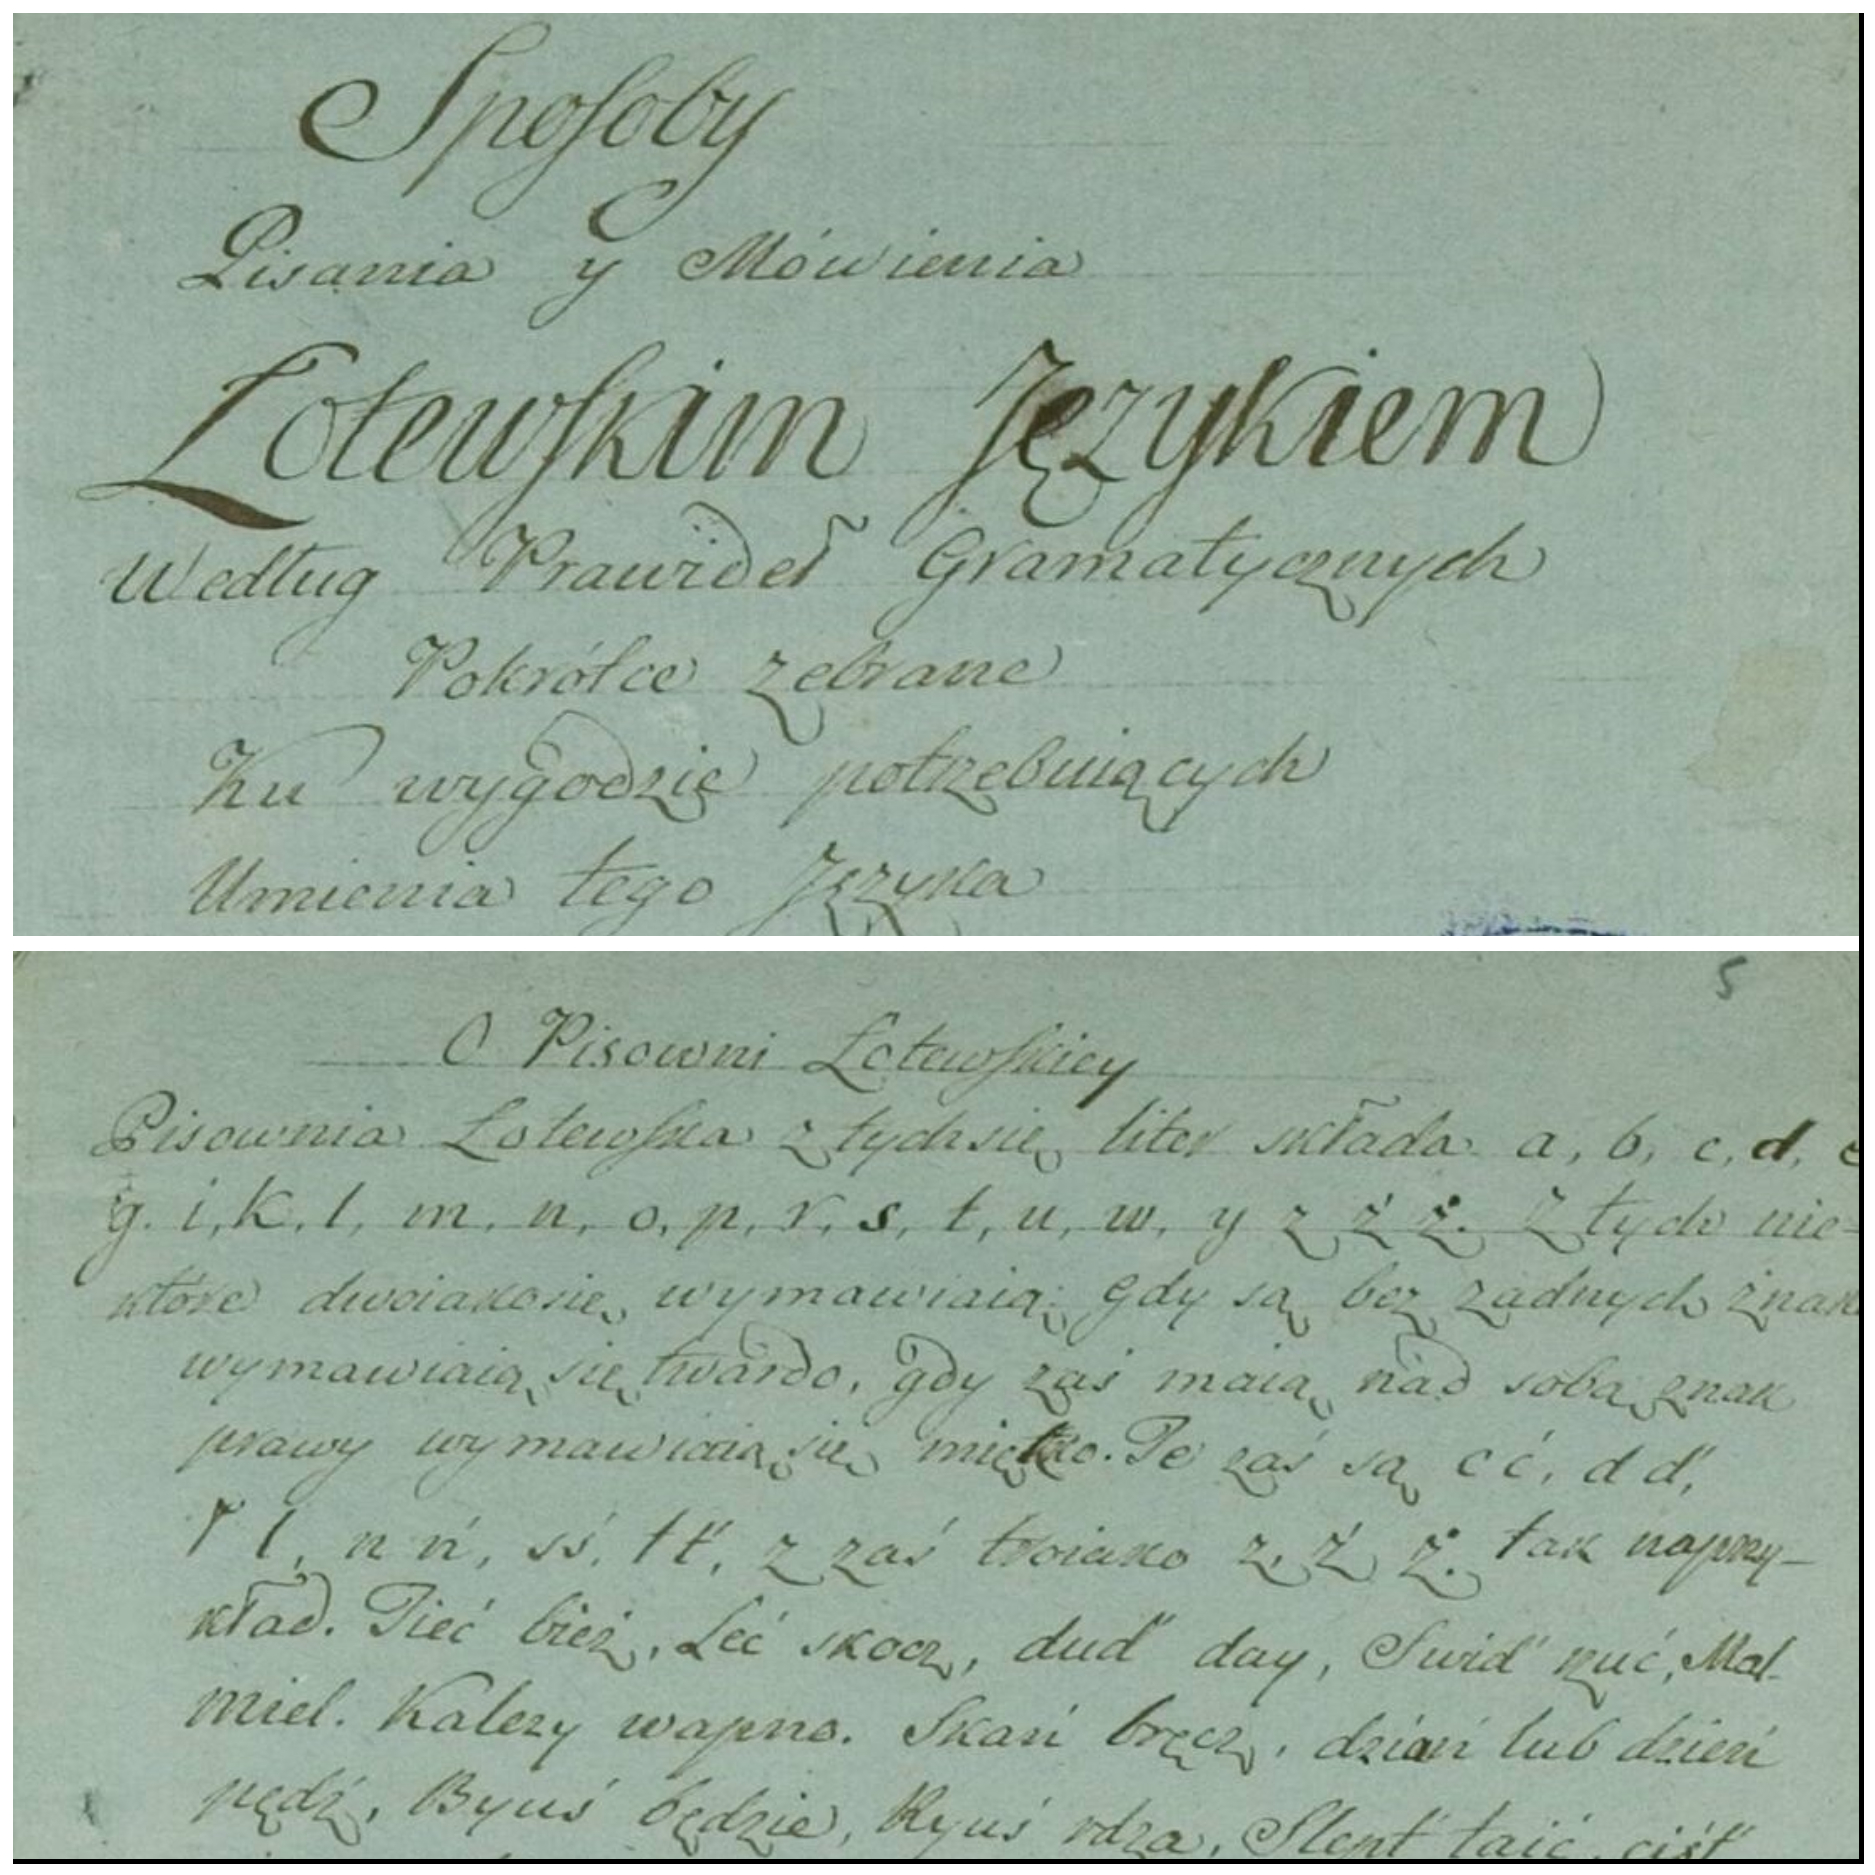 Sposoby
Pisania y Mówienia
Łotewskim Językiem
Według Prawideł Gramatycznych
Pokrótce zebrane
Ku wygodzie potrzebuiących
Umienia tego Języka
5
O Pisowni Łotewskiey
Pisownia Łotewska z tych się liter składa a, b, c, d, e
g. i, k, l, m, n, o, p, r, s, t, u, w, y z ź ż. Z tych nie-
które dwoiako się wymawiaią: gdy są bez żadnych znak
wymawiaią się twardo, gdy zaś maią nad sobą znak
prawy wymawiaią się miętko. Te zaś są c ć, d d́,
ł l, n ń, s ś, t t́, z zaś troiako z, ź ż. tak naprzy-
kład. Tieć bież, Leć skocz, dud́ day, Swid́ rzuć, Mal
miel. Kalezy wapno. Skań bręcz, dziań lub dzień
pędź, Byuś będzie, Ryuś rdza, Slept́ taić, ciśt́